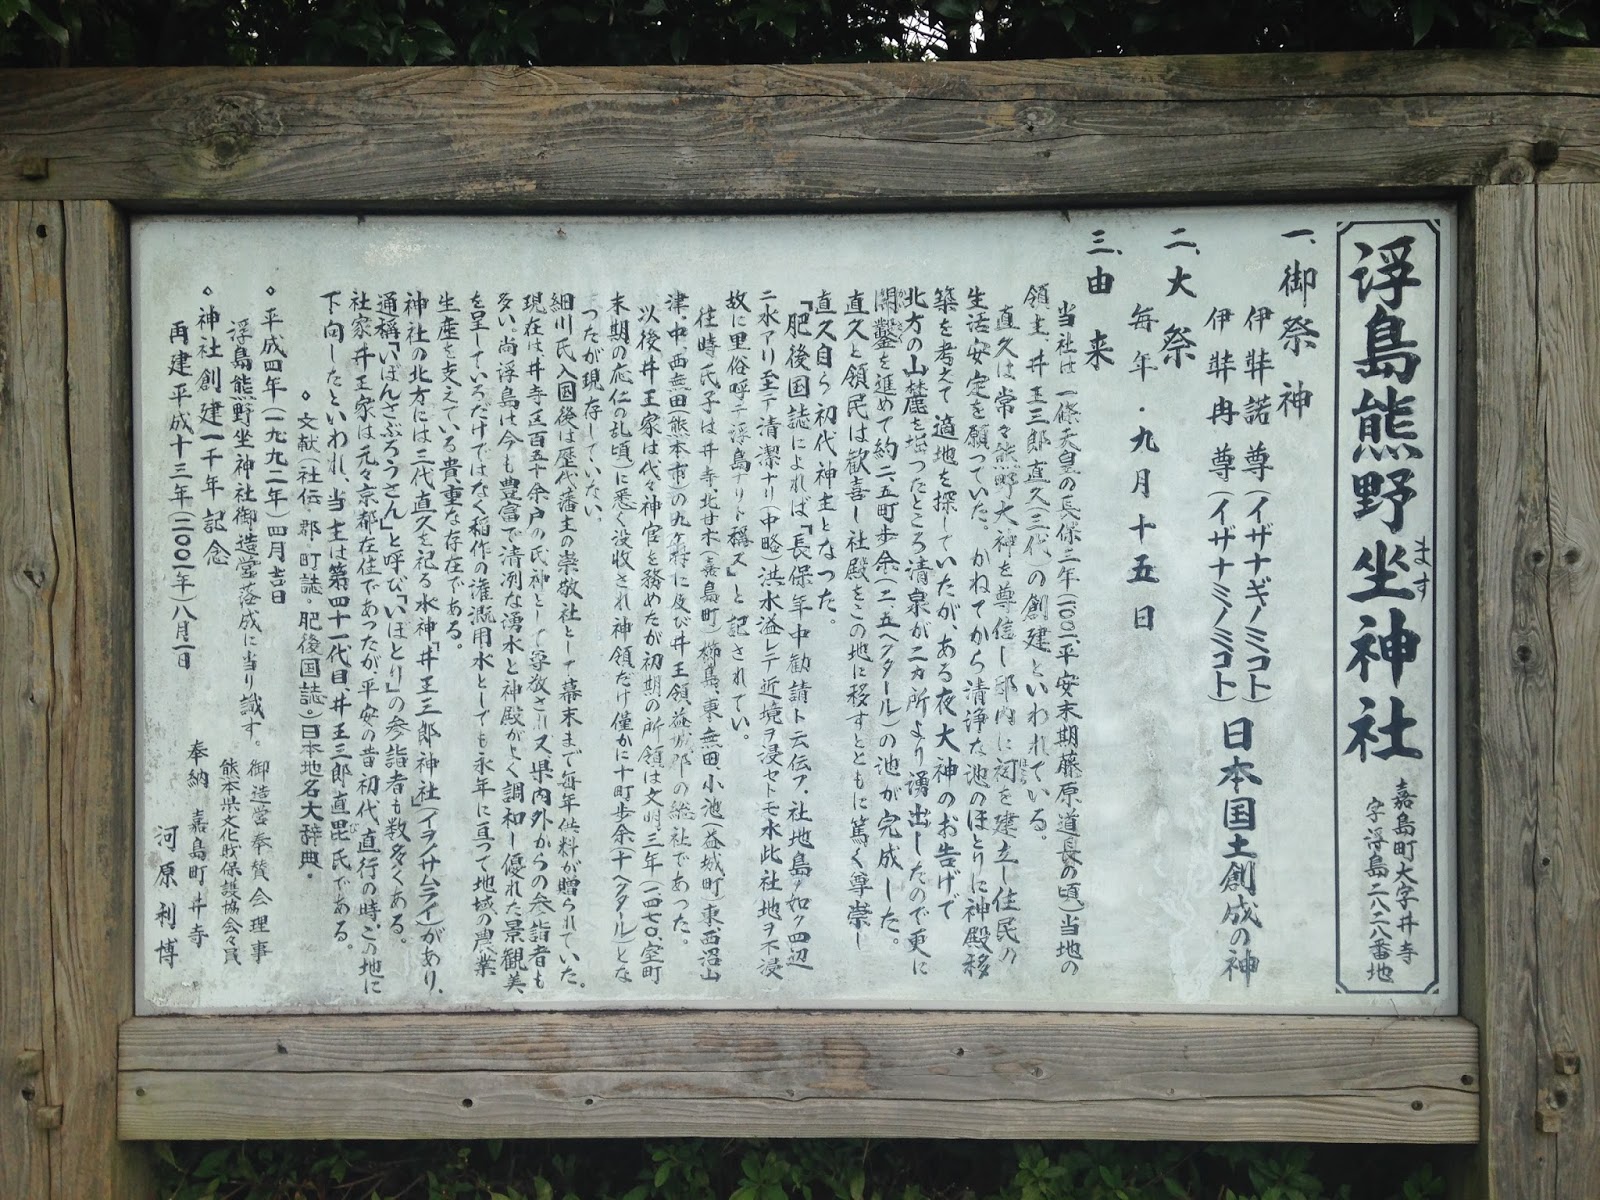 浮島熊野坐神社
ます
嘉島町大字井寺
字浮島二八二八番地
一、御祭神
伊弉諾尊(イザナギノミコト)
伊弉冉尊(イザナミノミコト)日本国土創成の神
二、大祭
毎年・九月十五日
三、由来
当社は一條天皇の長保三年(一〇〇一、平安末期藤原道長の頃)当地の
領主、井王三郎直久(三代)の創建といわれている。
直久は常々熊野大神を尊信し邸内に祠を建立し住民の
生活安定を願っていた。かねてから清浄な池のほとりに神殿移
築を考えて適地を探していたが、ある夜大神のお告げで
北方の山麓を堀ったところ清泉が二カ所より湧出したので更に
開鑿を進めて約二・五町歩余(二、五ヘクタール)の池が完成した。
直久と領民は歓喜し社殿をこの地に移すとともに篤く尊崇し
直久自ら初代神主となった。
「肥後国誌によれば「長保年中勧請ト云伝フ。社地島ノ如ク四辺
ニ水アリ至テ清潔ナリ(中略)洪水溢レテ近境ヲ浸セトモ水此社地ヲ不浸
故に里俗呼テ浮島ナリト稱ズ」と記されてい。
往時氏子は井寺、北甘木(嘉島町)櫛島、東無田、小池(益城町)東、西沼山
津、中、西無田(熊本市)の九ヶ村に及び井王領益城郡の総社であった。
以後井王家は代々神官を務めたが初期の所領は文明、三年(一四七〇、室町
末期の応仁の乱頃)に悉く没収され神領だけ僅かに十町歩余十ヘクタール)とな
つたが現存していたい。
細川氏入国後は歴代藩主の崇敬社として幕末まで毎年供料が贈られていた。
現在は井寺区百五十余戸の氏神として尊敬され又県内外からの参詣者も
多い。尚浮島は今も豊富で清冽な湧水と神殿がよく調和し優れた景観美
を呈しているだけではなく稲作の潅漑用水としても永年に亘って地域の農業
生産を支えている貴重な存在である。
神社の北方には三代直久を祀る水神「井王三郎神社」(イヲノサムライ)があり、
通稱「いぼんさぶろうさん」と呼び「いぼとり」の参詣者も数多くある。
社家井王家は元々京都在住であったが平安の昔初代直行の時、この地に
下向したといわれ、当主は第四十一代目、井王三郎直毘氏である。
◇文献(社伝・郡・町誌・肥後国誌。)日本地名大辞典。
◇平成四年(一九九二年)四月吉日
浮島熊野坐神社御造営落成に当り識す。
御造営奉賛会理事
熊本県文化財保護協会々員
◇神社創建一千年記念
奉納 嘉島町井寺
再建平成十三年(二〇〇一年)八月一日
河原利博